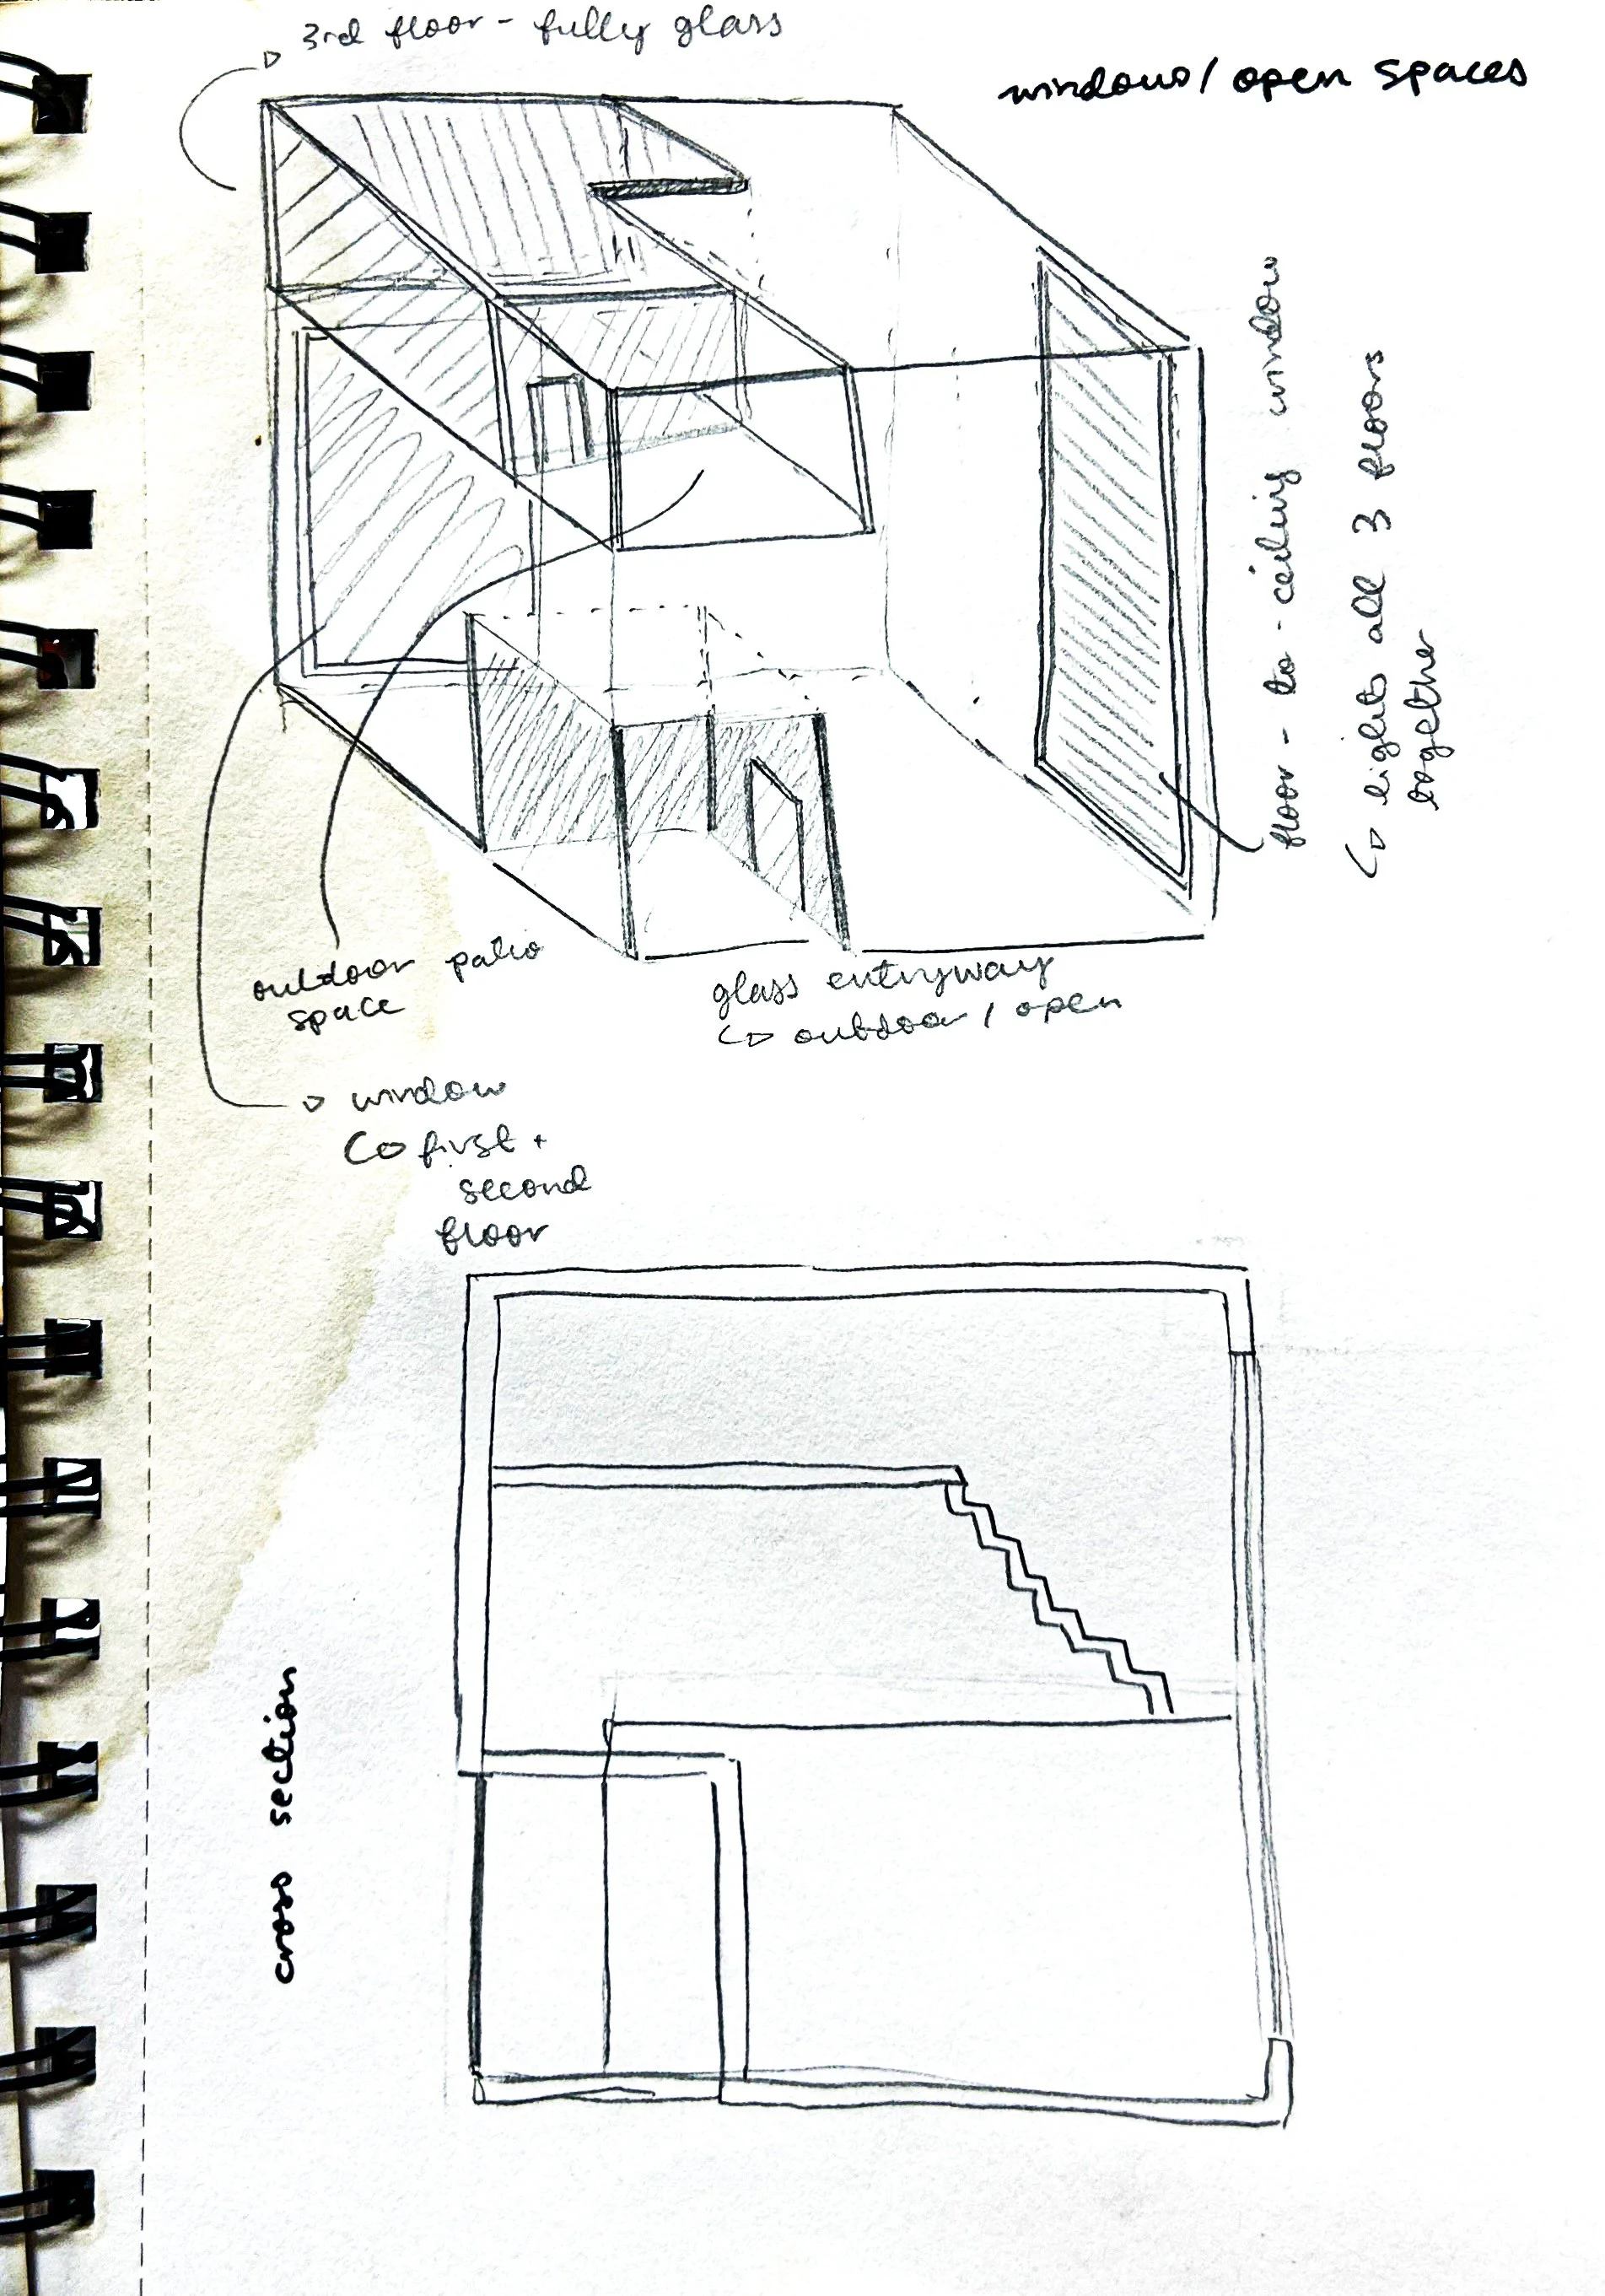 3rd floor - fully glass
windows / open spaces
floor - to - ceiling window
lights all 3 floors
together
outdoor patio
space
glass entryway
outdoor / open
window
first +
second
floor
cross section